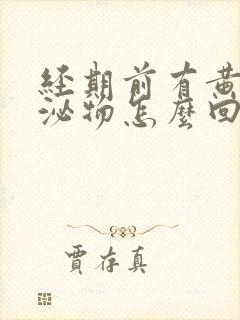 經期前有黃
泌物怎麼回
賈存真